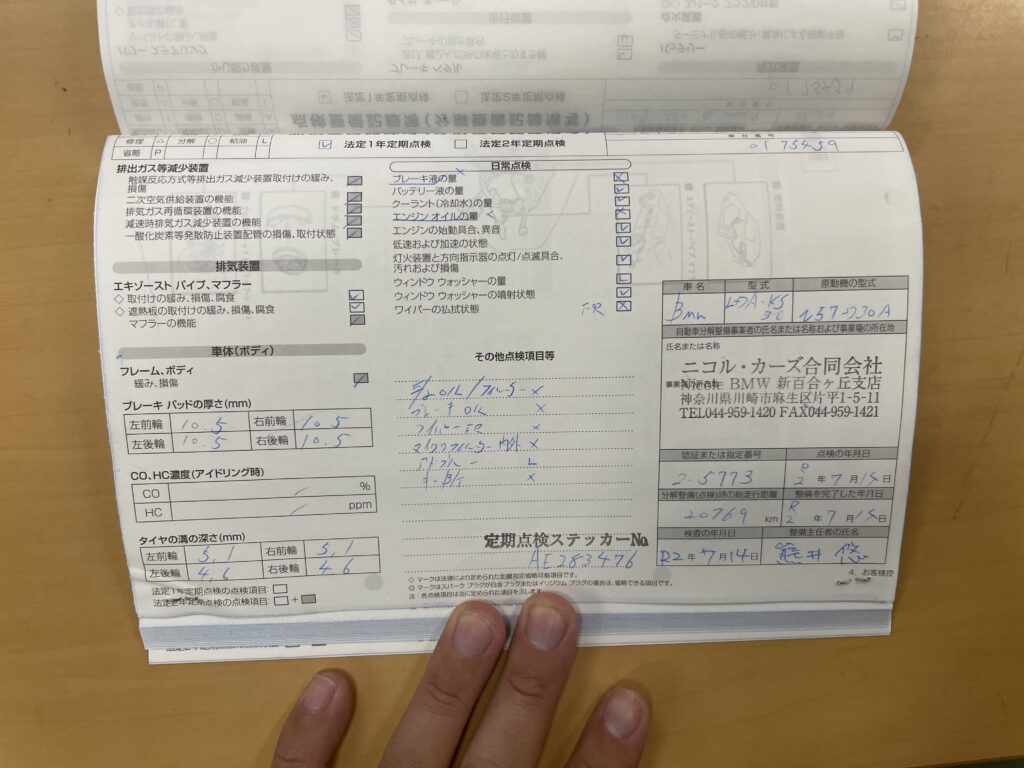 修理 △ 分解 ○ 給油 L
省略 P
法定1年定期点検 法定2年定期点検
車台番号
0T75459
排出ガス等減少装置
触媒反応方式等排出ガス減少装置取付けの緩み、
損傷
二次空気供給装置の機能
排気ガス再循環装置の機能
減速時排気ガス減少装置の機能
一酸化炭素等発散防止装置配管の損傷、取付状態
排気装置
エキゾースト パイプ、マフラー
◇ 取付けの緩み、損傷、腐食
◇ 遮熱板の取付けの緩み、損傷、腐食
マフラーの機能
車体(ボディ)
フレーム、ボディ
緩み、損傷
ブレーキ パッドの厚さ(mm)
左前輪 10.5 右前輪 10.5
左後輪 10.5 右後輪 10.5
CO、HC濃度(アイドリング時)
CO %
HC ppm
タイヤの溝の深さ(mm)
左前輪 5,1 右前輪 5,1
左後輪 4,6 右後輪 4,6
法定1年定期点検の点検項目:
法定2年定期点検の点検項目: +
日常点検
ブレーキ液の量
バッテリー液の量
クーラント(冷却水)の量
エンジン オイルの量
エンジンの始動具合、異音
低速および加速の状態
灯火装置と方向指示器の点灯/点滅具合、
汚れおよび損傷
ウィンドウ ウォッシャーの量
ウィンドウ ウォッシャーの噴射状態
ワイパーの払拭状態 F・R
その他点検項目等
ブレーキ OIL ×
定期点検ステッカーNo
AE283476
◇ マークは法律により定められた距離指定省略可能項目です。
◎ マークはスパーク プラグが白金プラグまたはイリジウム プラグの場合は、省略できる項目です。
注 各点検項目は法に定められた項目を示します。
車名 型式 原動機の型式
Bmw LDA-KS30 N57-D30A
自動車分解整備事業者の氏名または名称および事業場の所在地
氏名または名称
ニコル・カーズ合同会社
Nicole BMW 新百合ヶ丘支店
神奈川県川崎市麻生区片平1-5-11
TEL044-959-1420 FAX044-959-1421
認証または指定番号 点検の年月日
2-5773 R2年7月14日
分解整備(点検)時の総走行距離 整備を完了した年月日
20769 km R2年7月14日
検査の年月日 整備主任者の氏名
R2年7月14日 熊井 悠
4. お客様控